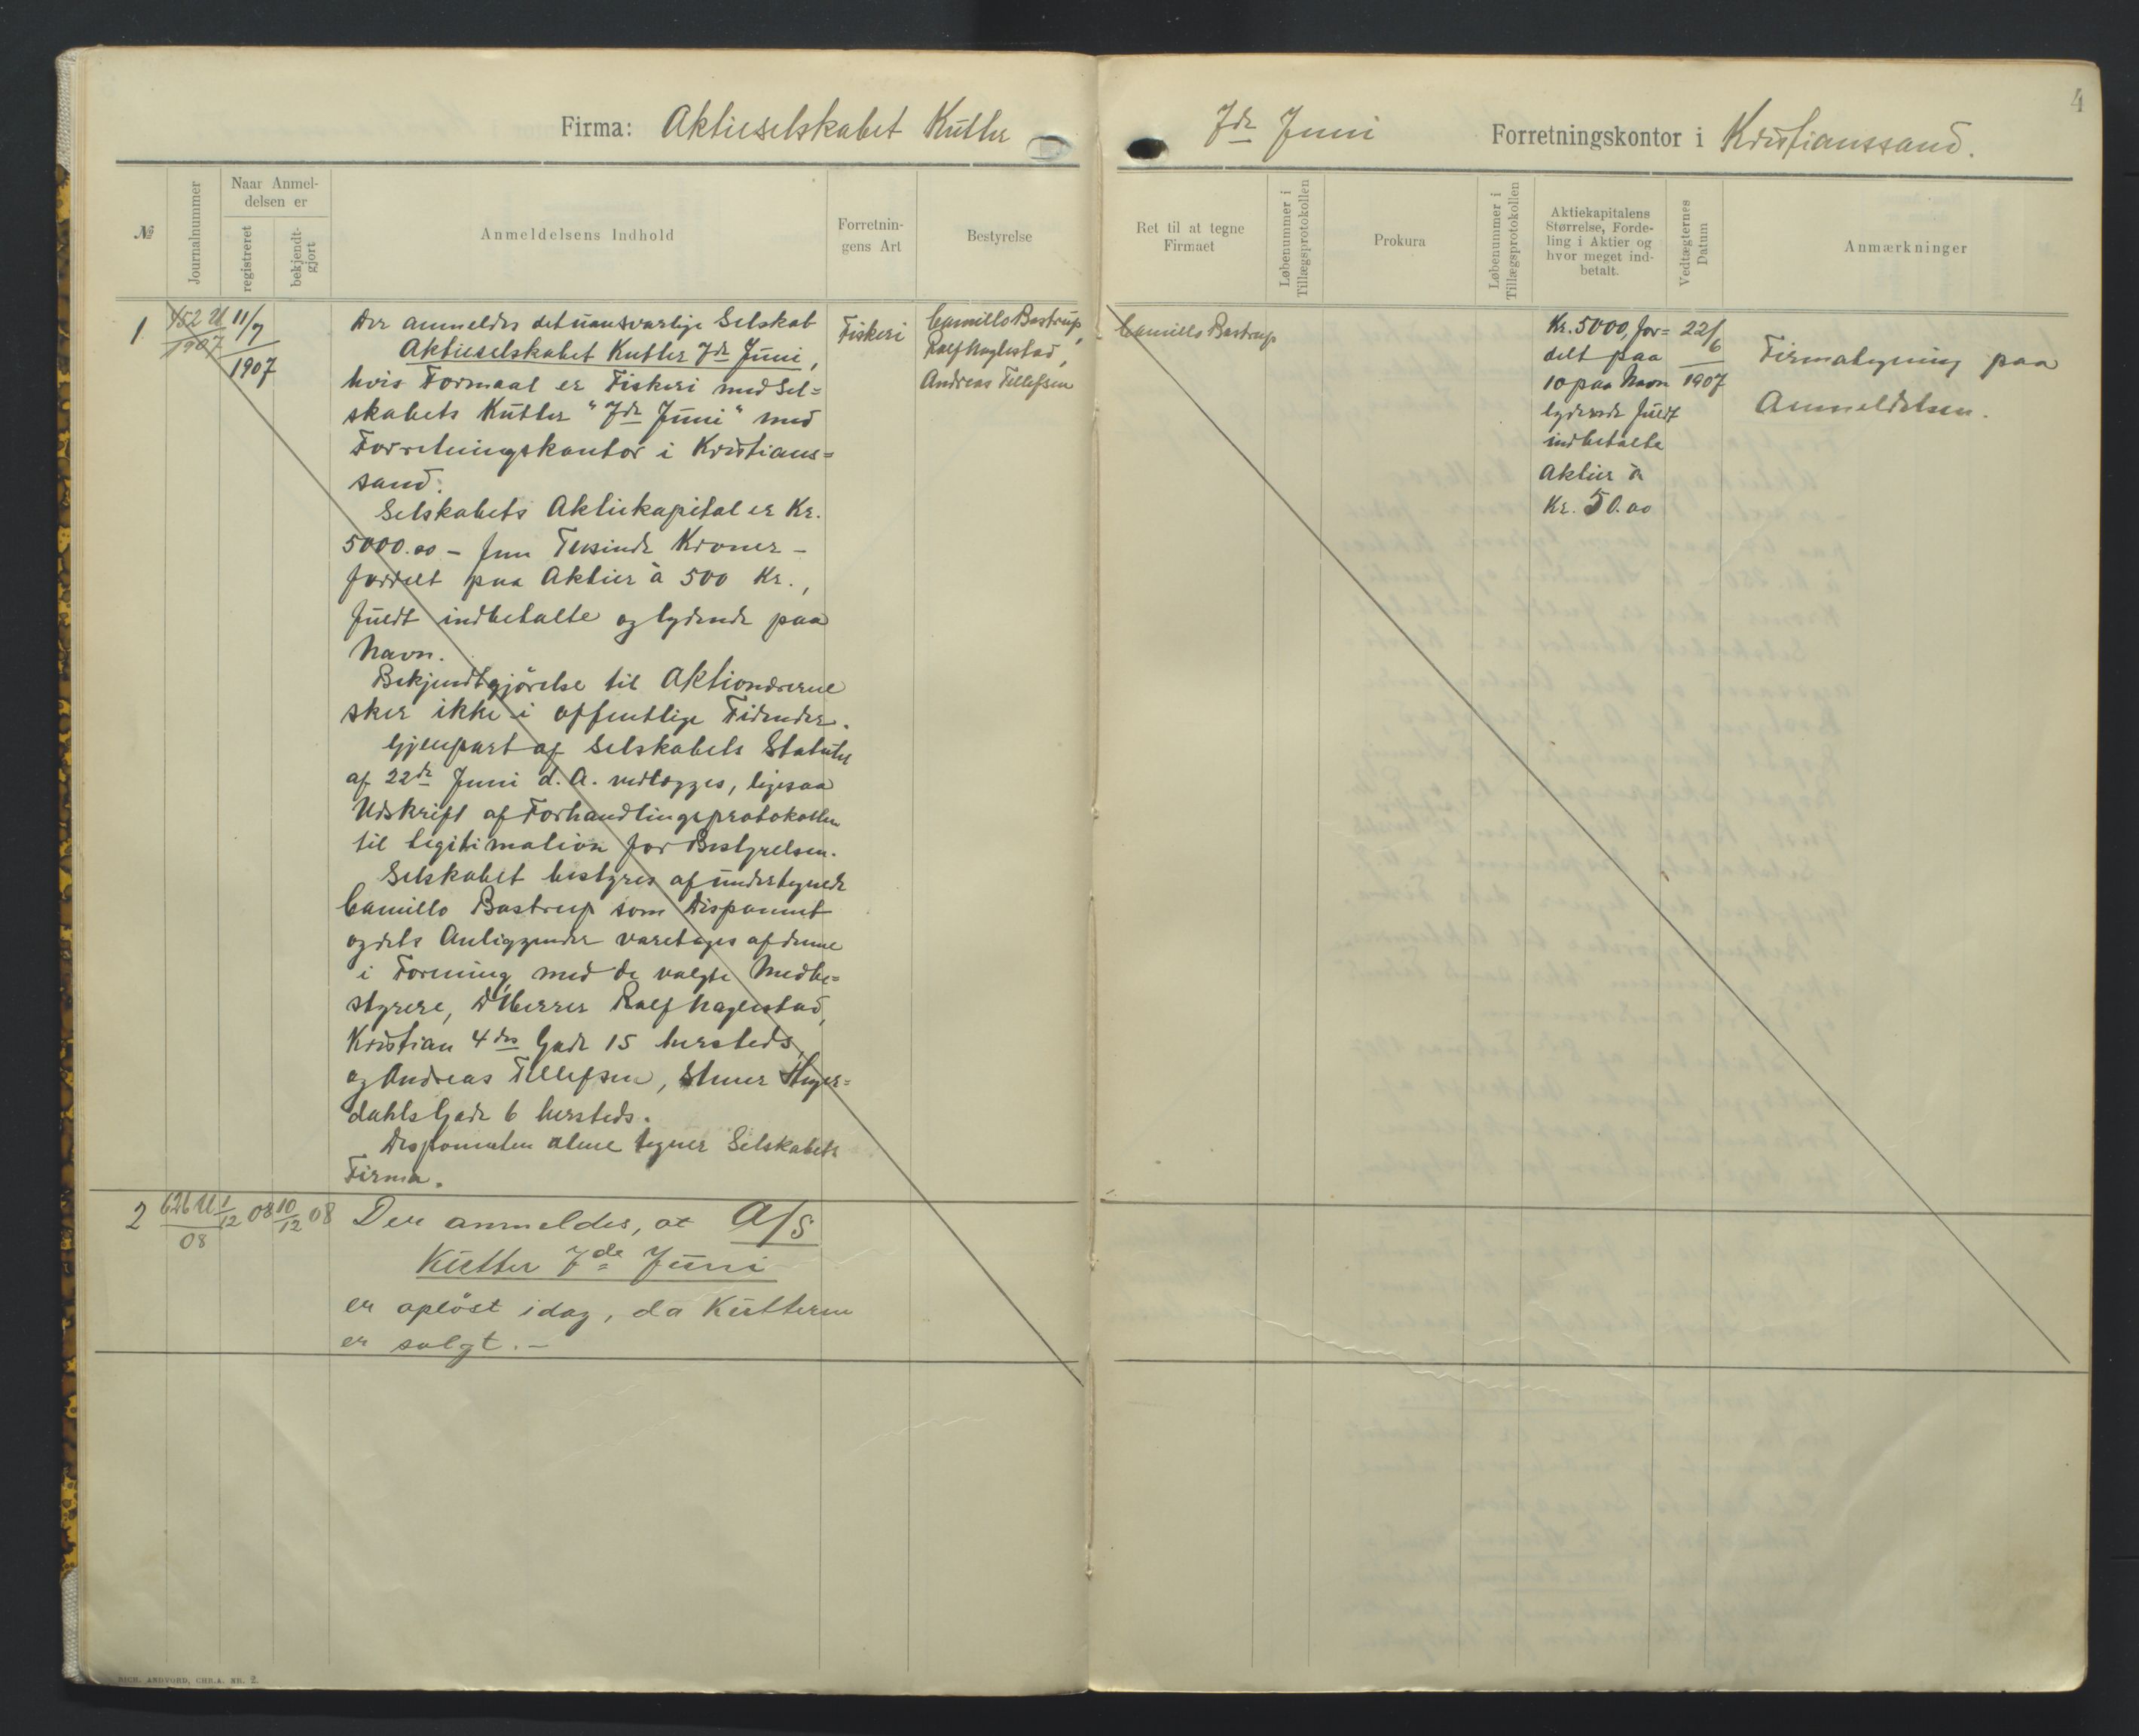 4
Firma: Aktieselskabet Kutter 7de Juni Forretningskontor i Kristianssand.
№
Journalnummer
Naar Anmel-
delsen er
registreret
bekjendt-
gjort
Anmeldelsens Indhold
Forretnin-
gens Art
Bestyrelse
Ret til at tegne
Firmaet
Løbenummer i
Tillægsprotokollen
Prokura
Løbenummer i
Tillægsprotokollen
Aktiekapitalens
Størrelse, Forde-
ling i Aktier og
hvor meget ind-
betalt.
Vedtægternes
Datum
Anmærkninger
1
1907
11/7
1907
Der anmeldes det uansvarlige Selskab
Aktieselskabet Kutter 7de Juni,
hvis Formaal er Fiskeri med Sel=
skabets Kutter "7de Juni" med
Forretningskontor i Kristians=
sand.
Selskabets Aktiekapital er Kr.
5000.00 – fem Tusinde Kroner –
fordelt paa Aktier à 500 Kr.,
fuldt indbetalte og lydende paa
Navn.
Bekjendtgjörelse til Aktionærerne
sker ikke i offentlige Tidender.
Gjenpart af Selskabets Statuter
af 22de Juni d. A. vedlægges, ligesaa
Udskrift af Forhandlingsprotokollen
til Legitimation for Bestyrelsen.
Selskabet bestyres af undertegnede
Camillo Bastrup som Disponent
og dets Anliggender varetages af denne
i Forening med de valgte Medbe=
styrere, D'Herrer Ralf Naglestad,
Kristian 4des Gade 15 hersteds,
og Andreas Tellefsen, Heyer=
dahls Gade 6 hersteds.
Disponenten alene tegner Selskabets
Firma.
Fiskeri
Camillo Bastrup,
Ralf Naglestad,
Andreas Tellefsen
Camillo Bastrup
Kr. 5000, for=
delt paa
10 paa Navn
lydende fuldt
indbetalte
Aktier à
Kr. 50.00
22/6
1907
Firmategning paa
Anmeldelsen.
2
626 U
08
1/12 08
10/12 08
Der anmeldes, at A/S
Kutter 7de Juni
er oplöst idag, da Kutteren
er solgt. –
RICH. ANDVORD, CHR.A. NR. 2.